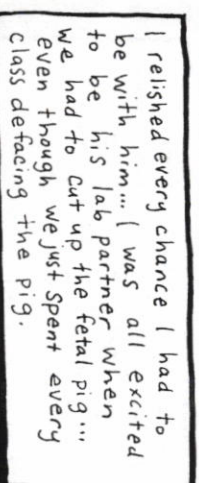 I relished every chance I had to
be with him... I was all excited
to be his lab partner when
we had to cut up the fetal pig...
even though we just spent every
class defacing the pig.